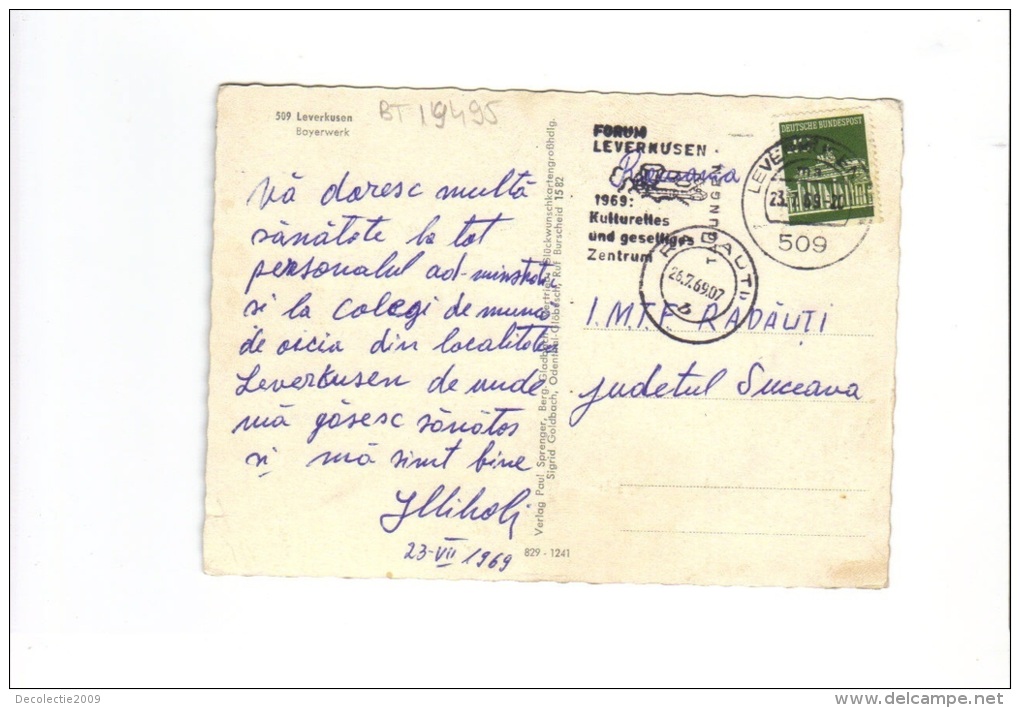 509 Leverkusen
Bayerwerk
BT 19495
Vă doresc multă
sănătate la tot
personalul ad-minstrativ
si la colegi de muncă
de aicia din localitatea
Leverkusen de unde
mă găsesc sănătos
si mă simt bine
23-VII 1969
Verlag Paul Sprenger, Berg.-Gladbach, Vertrieb: Glückwunschkartengroßhdlg.
Sigrid Goldbach, Odenthal-Glöbusch, Ruf Burscheid 15 82
829 - 1241
FORUM
LEVERKUSEN
1969:
Kulturelles
und geselliges
Zentrum
TAGUNGEN
Romania
DEUTSCHE BUNDESPOST
LEVERKUSEN
23.7.69
509
RADAUTI
26.7.69.07
I.M.T.F. RADĂUȚI
judetul Suceava
Decolectie2009
www.delcampe.net